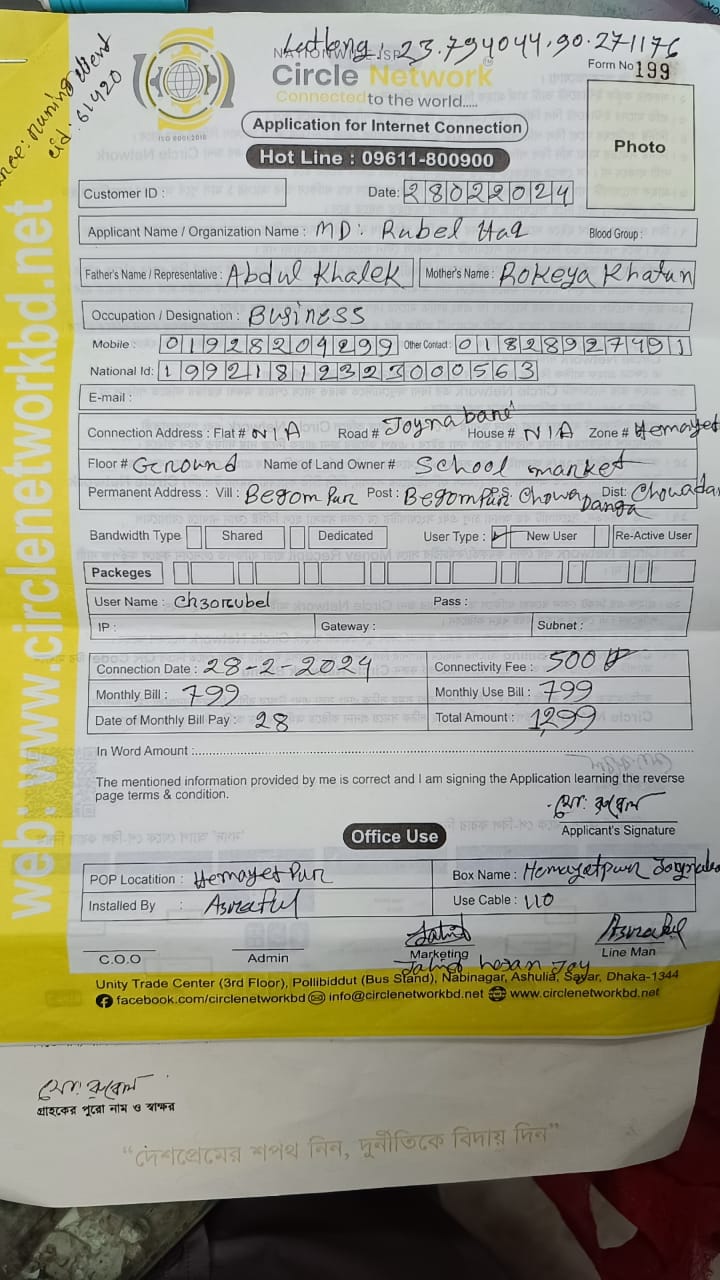 Latlong: 23.794044,90.271176
NATIONWIDE ISP
Circle Network
Connected to the world.....
ISO 9001:2015
Form No 199
Running client
cid: 61420
Application for Internet Connection
Photo
Hot Line : 09611-800900
Customer ID :
Date: 28022024
Applicant Name / Organization Name : MD: Rubel Haq Blood Group :
Father's Name / Representative : Abdul Khalek Mother's Name : Rokeya Khatun
Occupation / Designation : Business
Mobile : 01928204299 Other Contact : 01828927491
National Id: 19921819323000563
E-mail :
Connection Address : Flat # N/A Road # Joynabari House # N/A Zone # Hemayet
Floor # Ground Name of Land Owner # School market
Permanent Address : Vill : Begom Pur Post : Begompur P.S: Chowa Danga Dist: Chowadan
Bandwidth Type Shared Dedicated User Type : New User Re-Active User
Packeges
User Name : Ch3orubel Pass :
IP : Gateway : Subnet :
Connection Date : 28-2-2024 Connectivity Fee : 500
Monthly Bill : 799 Monthly Use Bill : 799
Date of Monthly Bill Pay : 28 Total Amount : 1299
In Word Amount :
The mentioned information provided by me is correct and I am signing the Application learning the reverse
page terms & condition.
মো: রুবেল
Applicant's Signature
Office Use
POP Locatition : Hemayet Pur Box Name : Hemayatpur
Installed By : Asraful Use Cable : 110
Jahid Asraful
C.O.O Admin Marketing Line Man
Jahid hasan Joy
Unity Trade Center (3rd Floor), Pollibiddut (Bus Stand), Nabinagar, Ashulia, Savar, Dhaka-1344
facebook.com/circlenetworkbd info@circlenetworkbd.net www.circlenetworkbd.net
web: www.circlenetworkbd.net
মো: রুবেল
গ্রাহকের পুরো নাম ও স্বাক্ষর
“দেশপ্রেমের শপথ নিন, দুর্নীতিকে বিদায় দিন”